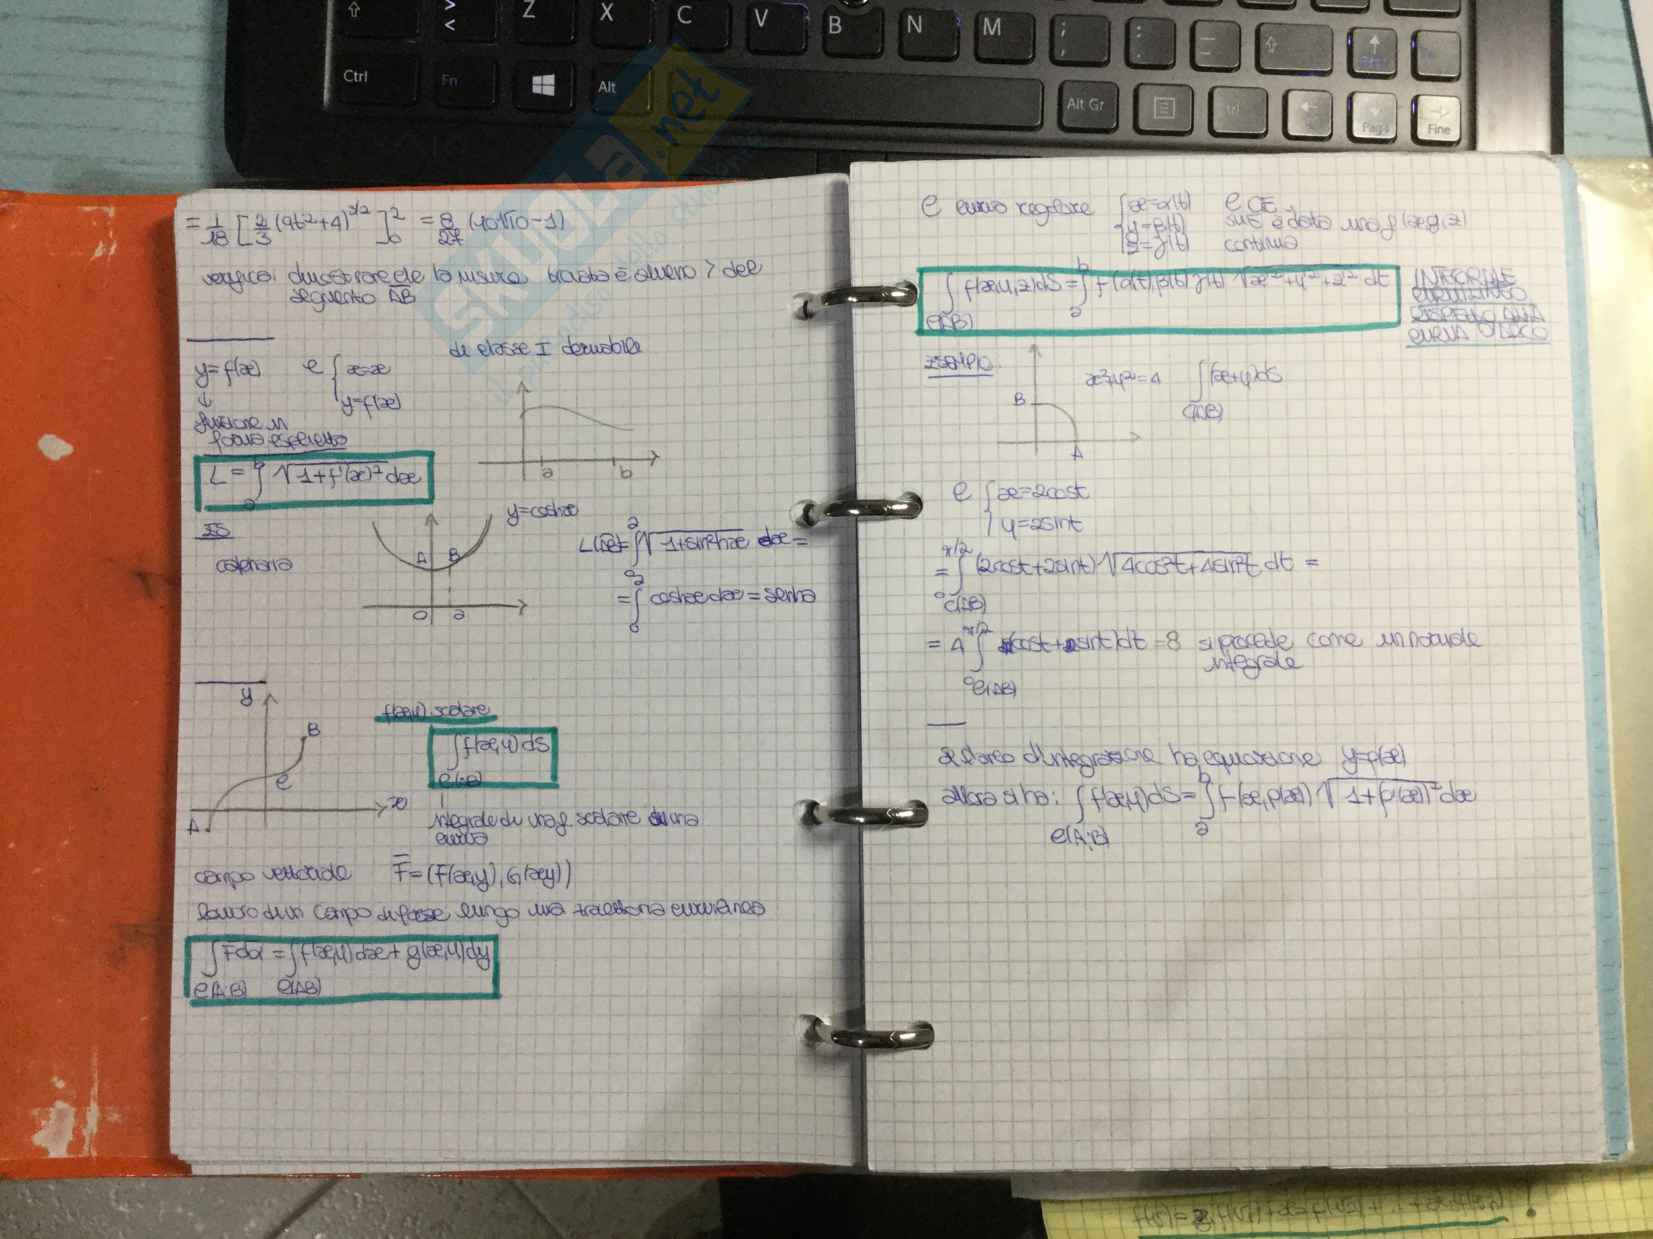 > <
Z
X
C
V
B
N
M
;
,
:
.
-
Ctrl
Fn
Alt
Alt Gr
Ctrl
Pag↓
Fine
SKUOLA.net
= 1/18 [2/3 (9t²+4)^3/2]₀² = 8/27 (10√10 - 1)
verifica: dimostrare che la misura trovata è almeno > del
segmento AB
di classe I derivabile
y=f(x) C { x=x
y=f(x)
↓
funzione in
forma esplicita
L = ∫ₐᵇ √1+f'(x)² dx
a b
ES
catenaria
y=coshx
A B
0 a
L(AB)=∫₀ᵃ √1+sinh²x dx =
= ∫₀ᵃ coshx dx = senha
y
B
C
A
x
f(x,y) scalare
∫ f(x,y) dS
C(AB)
integrale di una f. scalare su una
curva
campo vettoriale F = (F(x,y), G(x,y))
lavoro di un campo di forze lungo una traiettoria curvilinea
∫ F dα = ∫ f(x,y) dx + g(x,y) dy
C(A,B) C(AB)
C curva regolare { x=α(t)
y=β(t) su C è data una f(x,y,z)
z=γ(t) continua
∫ f(x,y,z) dS = ∫ₐᵇ f(α(t), β(t), γ(t)) √x'²+y'²+z'² dt
C(AB)
INTEGRALE
CURVILINEO
RISPETTO ALLA
CURVA O L'ARCO
ESEMPIO
B
A
x²+y²=4 ∫ (x+y) dS
C(AB)
C { x=2cost
y=2sint
= ∫₀^π/2 (2cost+2sint) √4cos²t+4sin²t dt =
C(AB)
= 4 ∫₀^π/2 (cost+sint) dt = 8 si procede come un normale
integrale
C(AB)
se l'arco d'integrazione ha equazione y=φ(x)
allora si ha: ∫ f(x,y) dS = ∫ₐᵇ f(x, φ(x)) √1+φ'(x)² dx
C(A,B)